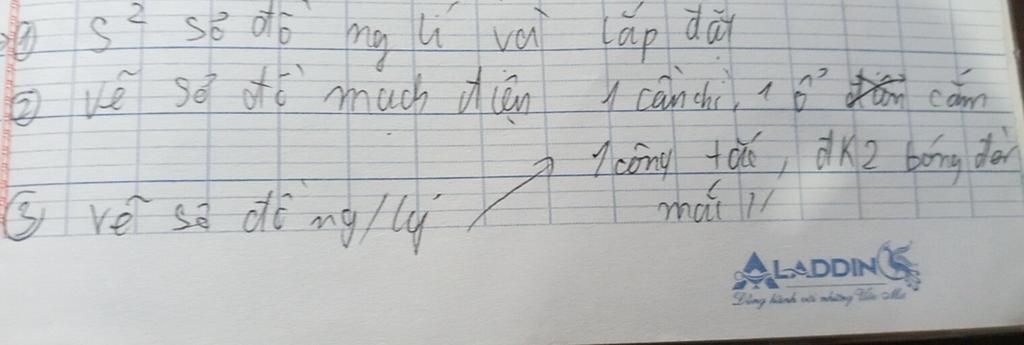 ① S² sơ đồ ng lí và lắp đặt
② vẽ sơ đồ mạch điện 1 cầu chì, 1 ổ cắm
1 công tắc, đk 2 bóng đèn
③ vẽ sơ đồ ng/lý mắc //
ALADDIN
Đồng hành với những Ước Mơ